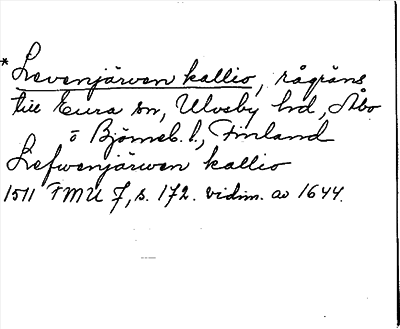 * Levenjärven kallio, rågräns
till Eura sn, Ulvsby hd, Åbo
o Björneb. l., Finland
Lefwenjärwen kallio
1511 FMU 7, s. 172. vidim. av 1644.